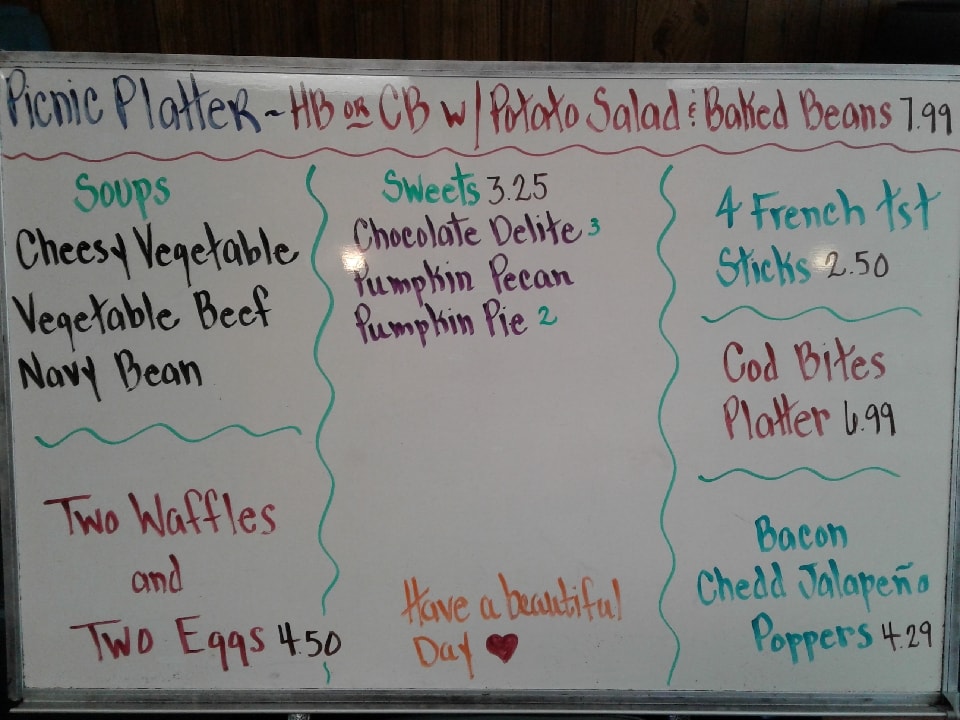 Picnic Platter ~ HB or CB w/ Potato Salad & Baked Beans 7.99
Soups
Cheesy Vegetable
Vegetable Beef
Navy Bean
Two Waffles
and
Two Eggs 4.50
Sweets 3.25
Chocolate Delite 3
Pumpkin Pecan
Pumpkin Pie 2
Have a beautiful
Day ♥
4 French tst
Sticks 2.50
Cod Bites
Platter 6.99
Bacon
Chedd Jalapeño
Poppers 4.29